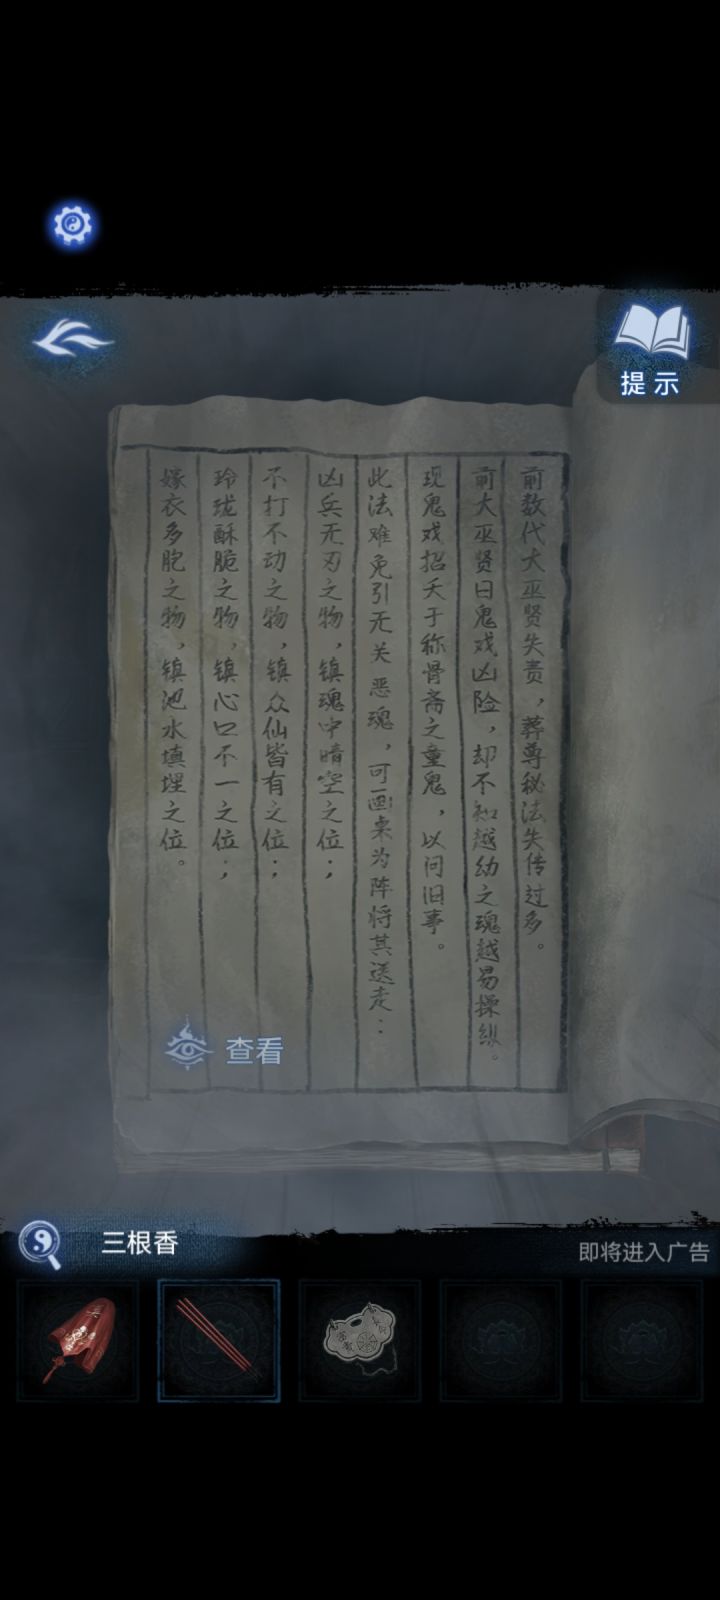 提示
前数代大巫贤失责，葬尊秘法失传过多。
前大巫贤曰鬼戏凶险，却不知越幼之魂越易操纵。
现鬼戏招夭于称骨斋之童鬼，以问旧事。
此法难免引无关恶魂，可画桌为阵将其送走：
凶兵无刃之物，镇魂中暗空之位；
不打不动之物，镇众仙皆有之位；
玲珑酥脆之物，镇心口不一之位；
嫁衣多胞之物，镇池水填埋之位。
查看
三根香
即将进入广告